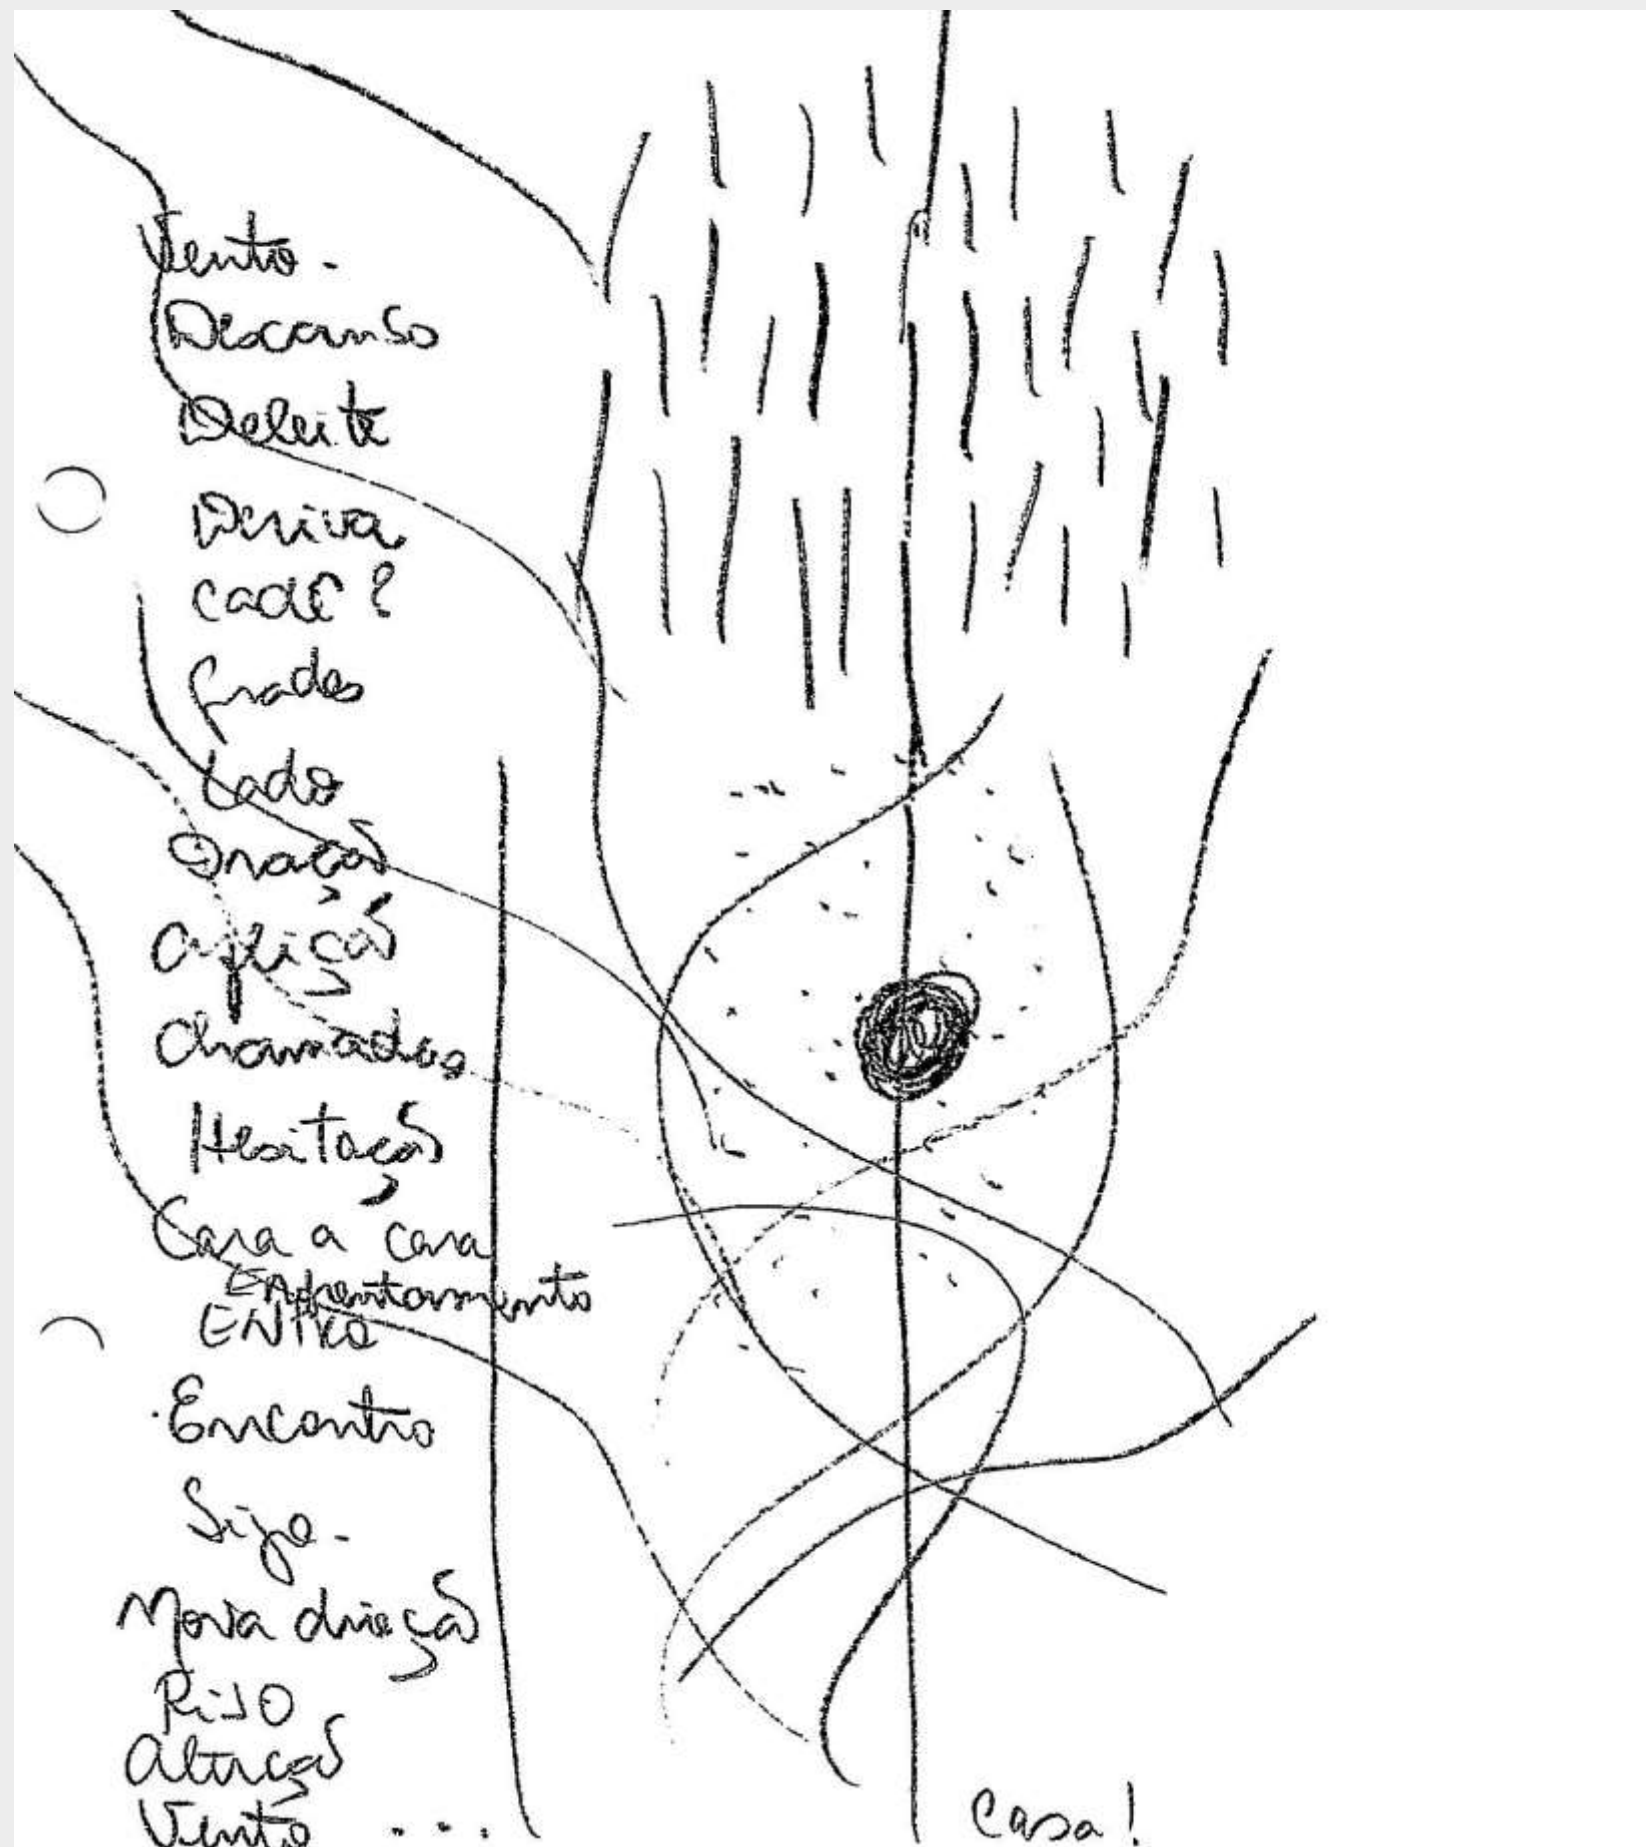 Vento -
Descanso
Deleite
Deriva
Cadê?
Grades
Lado
Oração
Aflição
Chamados
Hesitação
Cara a cara
Enfrentamento
ENtra
Encontro
Siga -
Nova direção
Riso
Atenção
Vento ...
Casa!